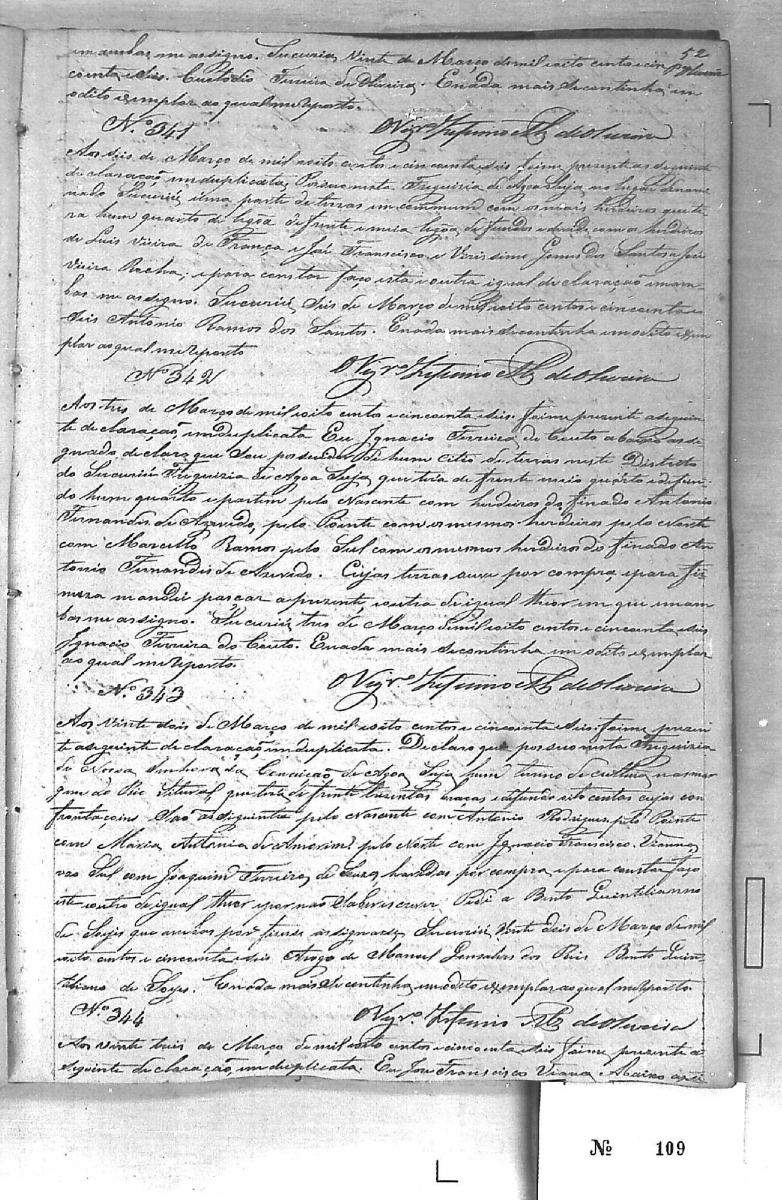 52
em ambas me asigno. Sucuriú, Vinte de Março de mil oito centos e cin
coenta e seis. Custodio Ferreira de Oliveira. E nada mais se continha em
o dito exemplar ao qual me reporto.
Nº 341 O Vigrº Zeferino de Oliveira
Aos seis de Março de mil oito centos e cincoenta e seis foi me prezente a seguinte
declaração, em duplicata, Possuo nesta Freguizia de Agoa Suja no lugar denomi
nado Sucuriú, uma parte de terras em commum com os mais herdeiros que te
ra hum quarto de legoa de frente e meia legoa de fundos e devide com os herdeiros
de Luis Vieira de França e José Francisco e Virissimo Gomes dos Santos e José
Vieira Rocha; e para constar faço esta e outra igual declaração em am
bas me asigno. Sucuriú, Seis de Março de mil oito centos e cincoenta e
seis Antonio Ramos dos Santos. E nada mais se continha em o dito exem
plar ao qual me reporto
Nº 342 O Vigrº Zeferino de Oliveira
Aos tres de Março de mil oito centos e cincoenta e seis. foi me prezente a seguin
te declaração, em duplicata Eu Ignacio Ferreira do Couto abaixo asi
gnado declaro que sou possuidor de hum citio de terras neste Districto
do Sucuriú Freguizia de Agoa Suja, que tera de frente meio quarto e de fun
do hum quarto e partem pelo Nascente com herdeiros do finado Antonio
Fernandes de Azevedo, pelo Poente com os mesmos herdeiros pelo Norte
com Marcello Ramos pelo Sul com os mesmos herdeiros do finado An
tonio Fernandes de Azevedo. Cujas terras ouve por compra, e para fir
meza mandei passar a prezente e outra de igual theor em que em am
bas me asigno. Sucuriú tres de Março de mil oito centos e cincoenta e seis
Ignacio Ferreira do Couto. E nada mais se continha em o dito exemplar
ao qual me reporto.
Nº 343 O Vigrº Zeferino de Oliveira
Aos vinte dois de Março de mil oito centos e cincoenta e seis foi me prezen
te a seguinte declaração, em duplicata. Declaro que possuo nesta Freguizia
de Nossa Senhora da Conceição de Agoa Suja hum terreno de cultura na mar
gem do Rio Setuval, que tera de frente trezentas bracas e de fundo oito centas cujas con
frontações são as seguintes pelo Nascente com Antonio Rodrigues, pelo Poente
com Maria Antonia de Amorim, pelo Norte com Ignacio Francisco Vianna,
e ao Sul com Joaquim Ferreira de havidas por compra e para constar faço
este e outro de igual theor e por não saber escrever Pedi a Bento Quintiliano
de que ambos por mim asignase, Sucuriú, Vinte dois de Março de mil
oito centos e cincoenta e seis Arogo de Manoel Gonsalves dos Reis Bento Quin
tiliano de E nada mais se continha em o dito exemplar ao qual me reporto.
Nº 344 O Vigrº Zeferino de Oliveira
Aos vinte tres de Março de mil oito centos e cincoenta e seis foi me prezente a
seguinte declaração, em duplicata. Eu José Francisco Viana abaixo asi
№ 109